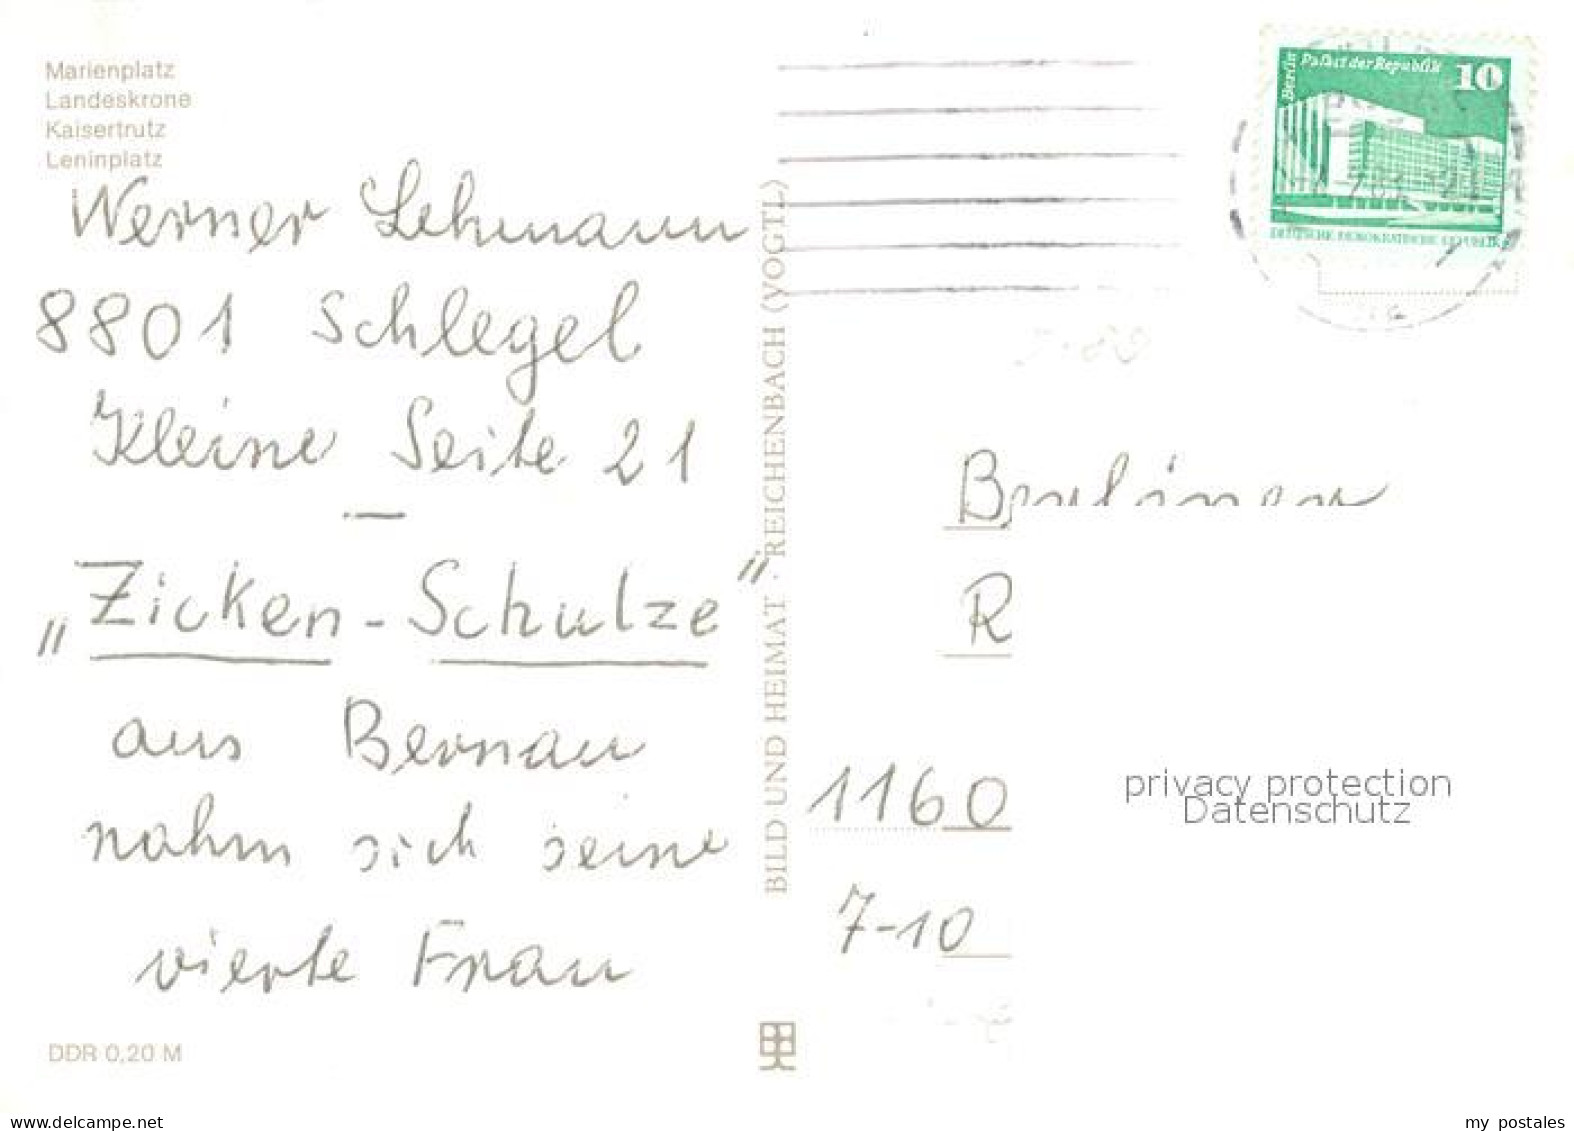 Marienplatz
Landeskrone
Kaisertrutz
Leninplatz
Werner Lehmann
8801 Schlegel
Kleine Seite 21
—
„Zicken-Schulze"
aus Bernau
nahm sich seine
vierte Frau
DDR 0,20 M
BILD UND HEIMAT · REICHENBACH (VOGTL)
Berlin
Palast der Republik 10
DEUTSCHE DEMOKRATISCHE REPUBLIK
Berliner
R
1160
7-10
privacy protection
Datenschutz
www.delcampe.net
my_postales